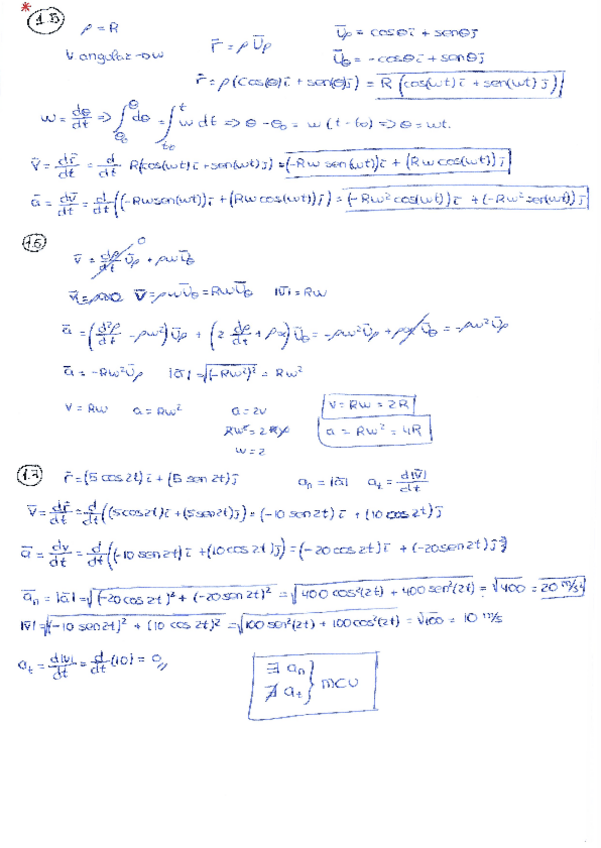 * 1.5
ρ = R
V angular → w
r̄ = ρ Ūρ
Ūρ = cosθ ī + senθ j̄
Ūθ = -cosθ ī + senθ j̄
r̄ = ρ(cosθ) ī + sen(θ) j̄) = R (cos(wt) ī + sen(wt) j̄)
w = dθ/dt => ∫θ₀^θ dθ = ∫t₀^t w dt => θ - θ₀ = w(t - t₀) => θ = wt.
v̄ = dr̄/dt = d/dt R(cos(wt) ī + sen(wt) j̄) = (-Rw sen(wt)) ī + (Rw cos(wt)) j̄
ā = dv̄/dt = d/dt ((-Rw sen(wt)) ī + (Rw cos(wt)) j̄) = (-Rw² cos(wt)) ī + (-Rw² sen(wt)) j̄
1.6
v̄ = dρ/dt Ūρ + ρw Ūθ
0
v̄ = ρwŪθ = RwŪθ |v̄| = Rw
ā = (d²ρ/dt - ρw²) Ūρ + (2 dρ/dt + ρα) Ūθ = -ρw² Ūρ + ρα Ūθ = -ρw² Ūρ
ā = -Rw² Ūρ |ā| = √(-Rw²)² = Rw²
v = Rw a = Rw² a = 2v v = Rw = 2R
Rw² = 2Rw a = Rw² = 4R
w = 2
1.7
r̄ = (5 cos 2t) ī + (5 sen 2t) j̄ aₙ = |ā| aₜ = d|v̄|/dt
v̄ = dr̄/dt = d/dt ((5 cos 2t) ī + (5 sen 2t) j̄) = (-10 sen 2t) ī + (10 cos 2t) j̄
ā = dv/dt = d/dt ((-10 sen 2t) ī + (10 cos 2t) j̄) = (-20 cos 2t) ī + (-20 sen 2t) j̄
āₙ = |ā| = √(-20 cos 2t)² + (-20 sen 2t)² = √400 cos²(2t) + 400 sen²(2t) = √400 = 20 m/s²
|v̄| = √(-10 sen 2t)² + (10 cos 2t)² = √100 sen²(2t) + 100 cos²(2t) = √100 = 10 m/s
aₜ = d|v̄|/dt = d/dt (10) = 0//
∃ aₙ
∄ aₜ } MCU